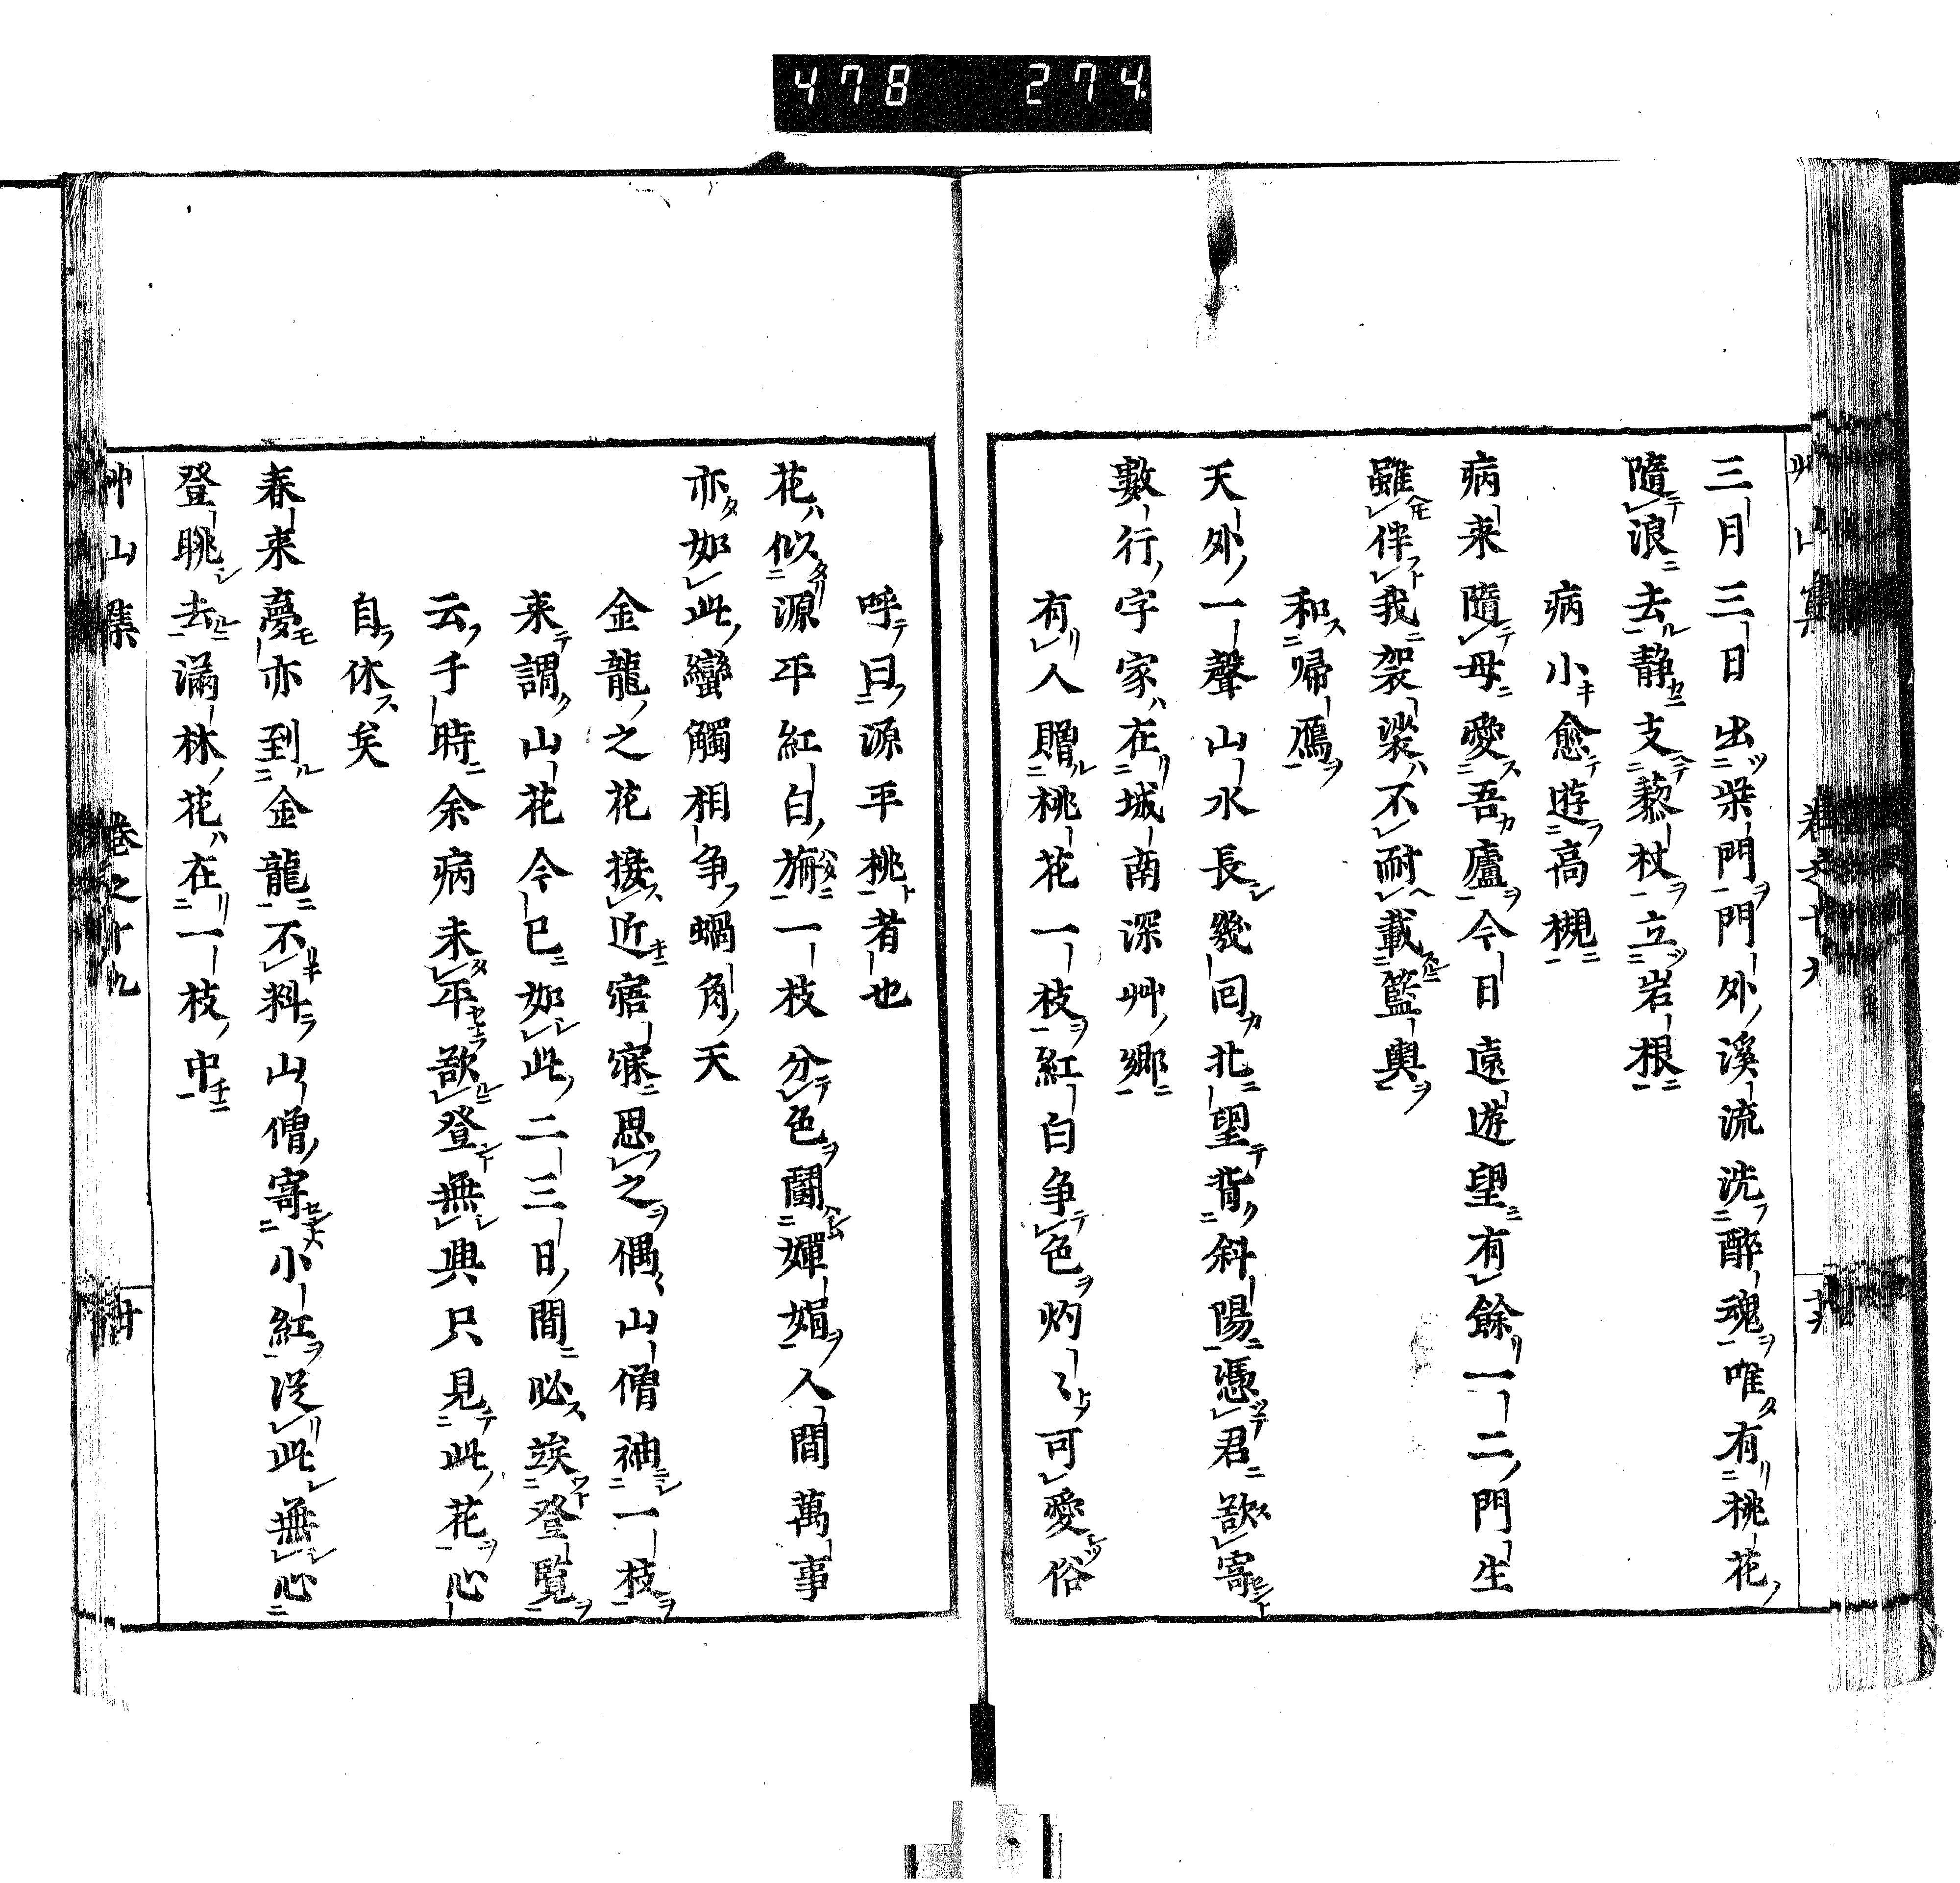 478 274
三月三日出柴門門外溪流洗醉魂唯有桃花
隨浪去靜支藜杖立岩根
病小愈遊高槻
病来隨母愛吾廬今日遠遊望有餘一二門生
雖伴我袈裟不耐載籃輿
和帰鴈
天外一聲山水長幾回北望背斜陽憑君欲寄
數行字家在城南深艸鄉
有人贈桃花一枝紅白争色灼〻可愛俗
呼曰源平桃者也
花似源平紅白旆一枝分色鬪嬋娟人間萬事
亦如此蠻觸相争蝸角天
金龍之花花接近寤寐思之偶山僧袖一枝
来謂山花今已如此二三日間必竢登覧
云于時余病未平欲登無興只見此花心
自休矣
春来夢亦到金龍不料山僧寄小紅従此無心
登眺去滿林花在一枝中
艸山集 巻之十九 廿